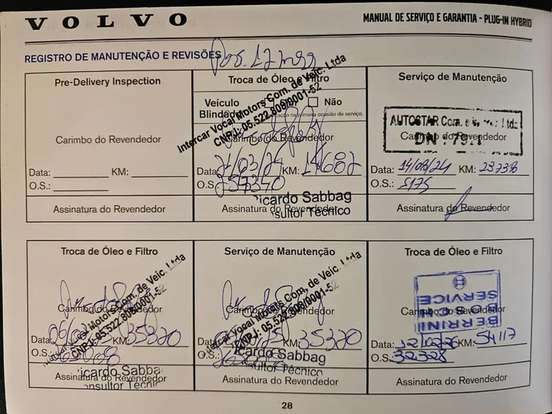 VOLVO
MANUAL DE SERVIÇO E GARANTIA - PLUG-IN HYBRID
REGISTRO DE MANUTENÇÃO E REVISÕES
Pre-Delivery Inspection
Carimbo do Revendedor
Data: KM:
O.S.:
Assinatura do Revendedor
Troca de Óleo e Filtro
Veículo Blindado Não
Intercar Vocal Motors Com. de Veic. Ltda
CNPJ: 05.522.808/0001-52
Carimbo do Revendedor
Data: 21/03/24 KM: 14682
O.S.: 257340
Ricardo Sabbag
Consultor Técnico
Assinatura do Revendedor
Serviço de Manutenção
AUTOSTAR Com. Ltda.
DN.: 79.1
Carimbo do Revendedor
Data: 14/08/24 KM: 23738
O.S.: 5175
Assinatura do Revendedor
Troca de Óleo e Filtro
Motors Com. de Veic. Ltda
CNPJ: 05.522.808/0001-52
Carimbo do Revendedor
Data: KM: 35320
O.S.:
Ricardo Sabbag
Consultor Técnico
Assinatura do Revendedor
Serviço de Manutenção
Intercar Vocal Motors Com. de Veic. Ltda
CNPJ: 05.522.808/0001-52
Carimbo do Revendedor
Data: KM: 35320
O.S.:
Ricardo Sabbag
Consultor Técnico
Assinatura do Revendedor
Troca de Óleo e Filtro
BERRINI
BOSCH
SERVICE
Carimbo do Revendedor
Data: KM: 54117
O.S.: 32328
Assinatura do Revendedor
28